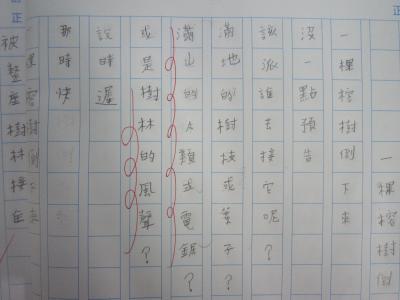 一棵榕樹倒
一棵榕樹倒下來
沒一點預告
該派誰去接它呢？
滿地的樹枝或葉子？
滿山的人類或電鋸？
或是樹林的風聲？
說時遲
那時快
被整座樹林接住